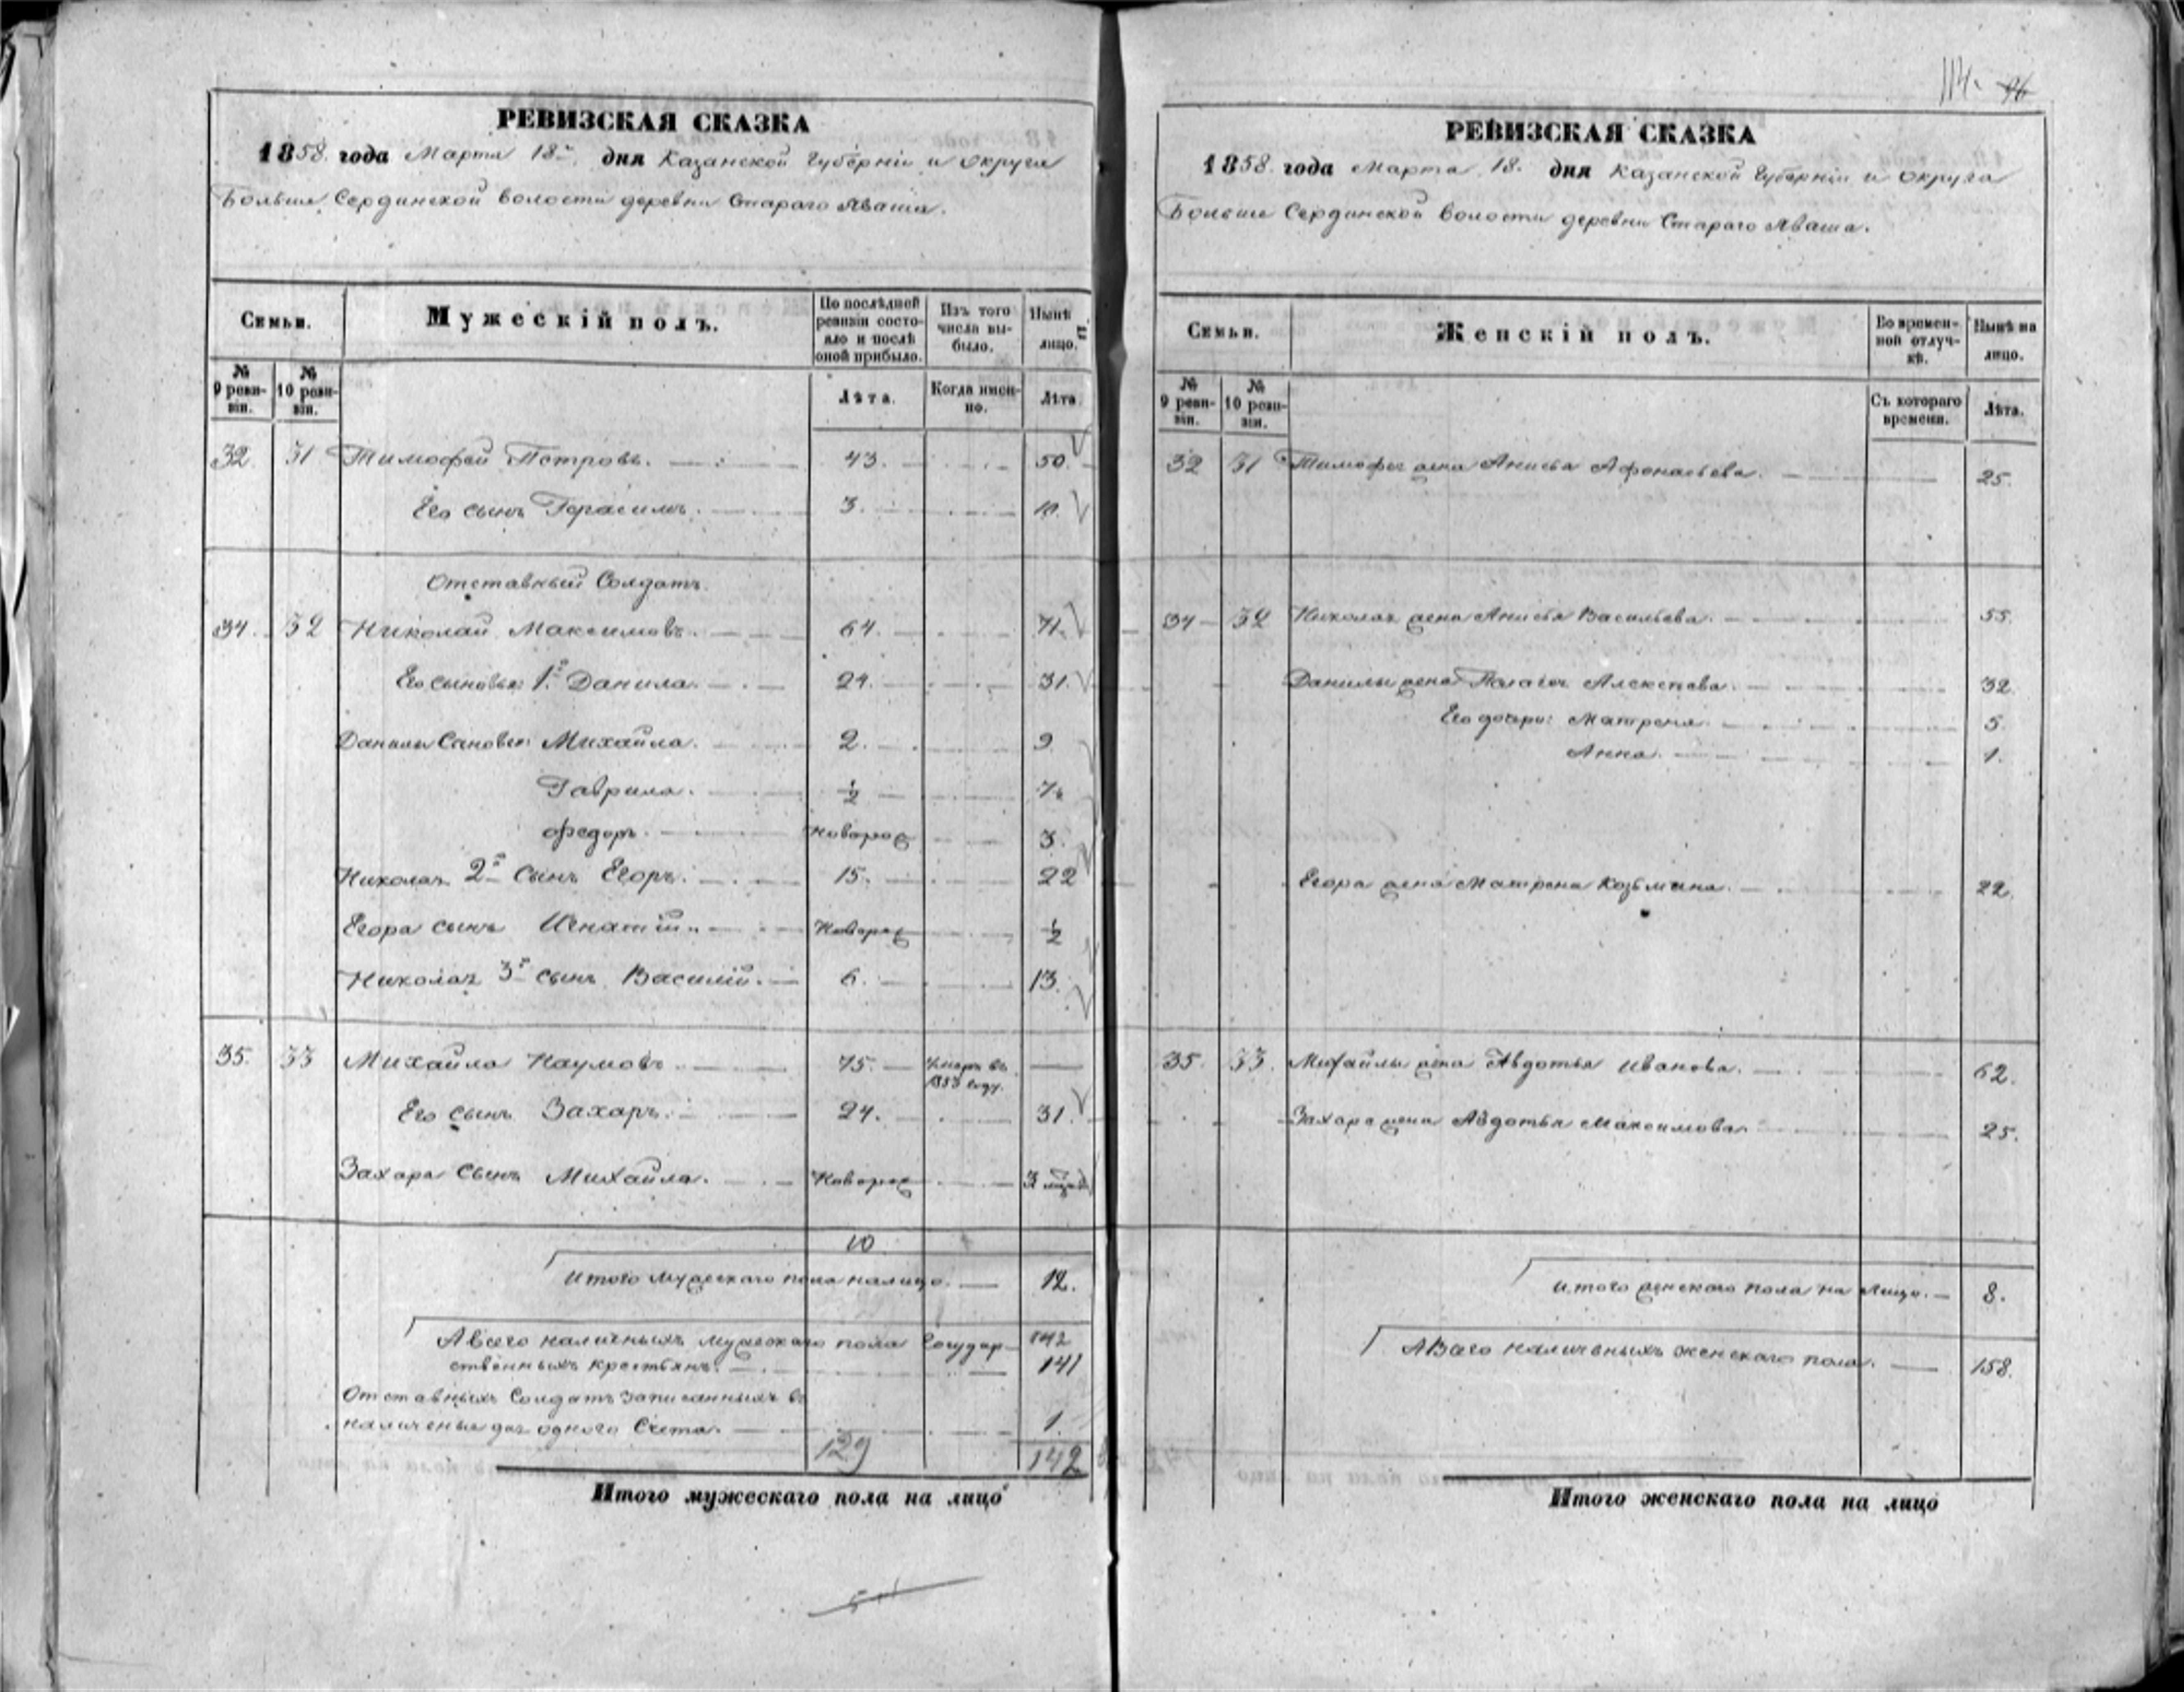 РЕВИЗСКАЯ СКАЗКА
1858 года Марта 18 дня Казанской Губерніи и округа
Больше Сердинской волости деревни Стараго Аваша.
Семьи.
Мужескій полъ.
По послѣдней ревизіи состояло и послѣ оной прибыло.
Изъ того числа выбыло.
Нынѣ на лицо.
№ 9 ревизіи.
№ 10 ревизіи.
Лѣта.
Когда именно.
Лѣта.
32. 31 Тимофей Петровъ. 43. 50.
Его сынъ Герасимъ. 3. 10.
Отставный Солдатъ.
34. 32 Николай Максимовъ. 64. 71.
Его сыновья: 1й Данила. 24. 31.
Данилы Сановья: Михайла. 2. 9.
Гаврила. 1/2 7.
Федоръ. Новорож 3.
Николая 2й сынъ Егоръ. 15. 22
Егора сынъ Игнатій. Новорож 1/2
Николая 3й сынъ Василій. 6. 13.
35. 33 Михайла Наумовъ. 75. Умеръ въ 1853 году. —
Его сынъ Захаръ. 24. 31.
Захара сынъ Михайла. Новорож 3
10
Итого мужескаго пола налицо. 12.
А всего наличныхъ мужескаго пола Государ- 142
ственныхъ крестьянъ. 141
Отставныхъ Солдатъ записанныхъ въ
наличные для одного Счета. 1.
129 142
Итого мужескаго пола на лицо
114. 96
РЕВИЗСКАЯ СКАЗКА
1858 года Марта 18. дня Казанской Губерніи и округа
Больше Сердинской волости деревни Стараго Аваша.
Семьи.
Женскій полъ.
Во временной отлучкѣ.
Нынѣ на лицо.
№ 9 ревизіи.
№ 10 ревизіи.
Съ котораго времени.
Лѣта.
32 31 Тимофея жена Анисья Афонасьева. 25.
34 32 Николая жена Анисья Васильева. 55.
Данилы жена Палагея Алексеева. 32.
Его дочери: Матрена. 5.
Анна. 1.
Егора жена Матрена Козьмина. 22.
35. 33. Михайлы жена Авдотья Иванова. 62.
Захара жена Авдотья Максимова. 25.
Итого женскаго пола на лицо. 8.
А Всего наличныхъ женскаго пола. 158.
Итого женскаго пола на лицо